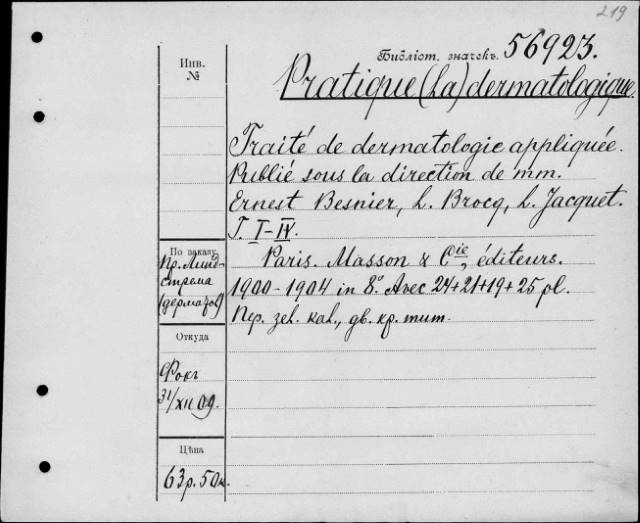 219
Инв. №
Библіот. значекъ. 56923.
Pratique (La) dermatologique.
Traité de dermatologie appliquée.
Publié sous la direction de mm.
Ernest Besnier, L. Brocq, L. Jacquet.
T. I-IV.
Paris. Masson & Cie, éditeurs.
1900-1904 in 8º. Avec 24+21+19+25 pl.
Пер. зел. кал., дв. кр. тит.
По заказу
Пр. Линд-
стрема
(дерматов)
Откуда
Фокъ
31/XII 09.
Цѣна
63 р. 50 к.